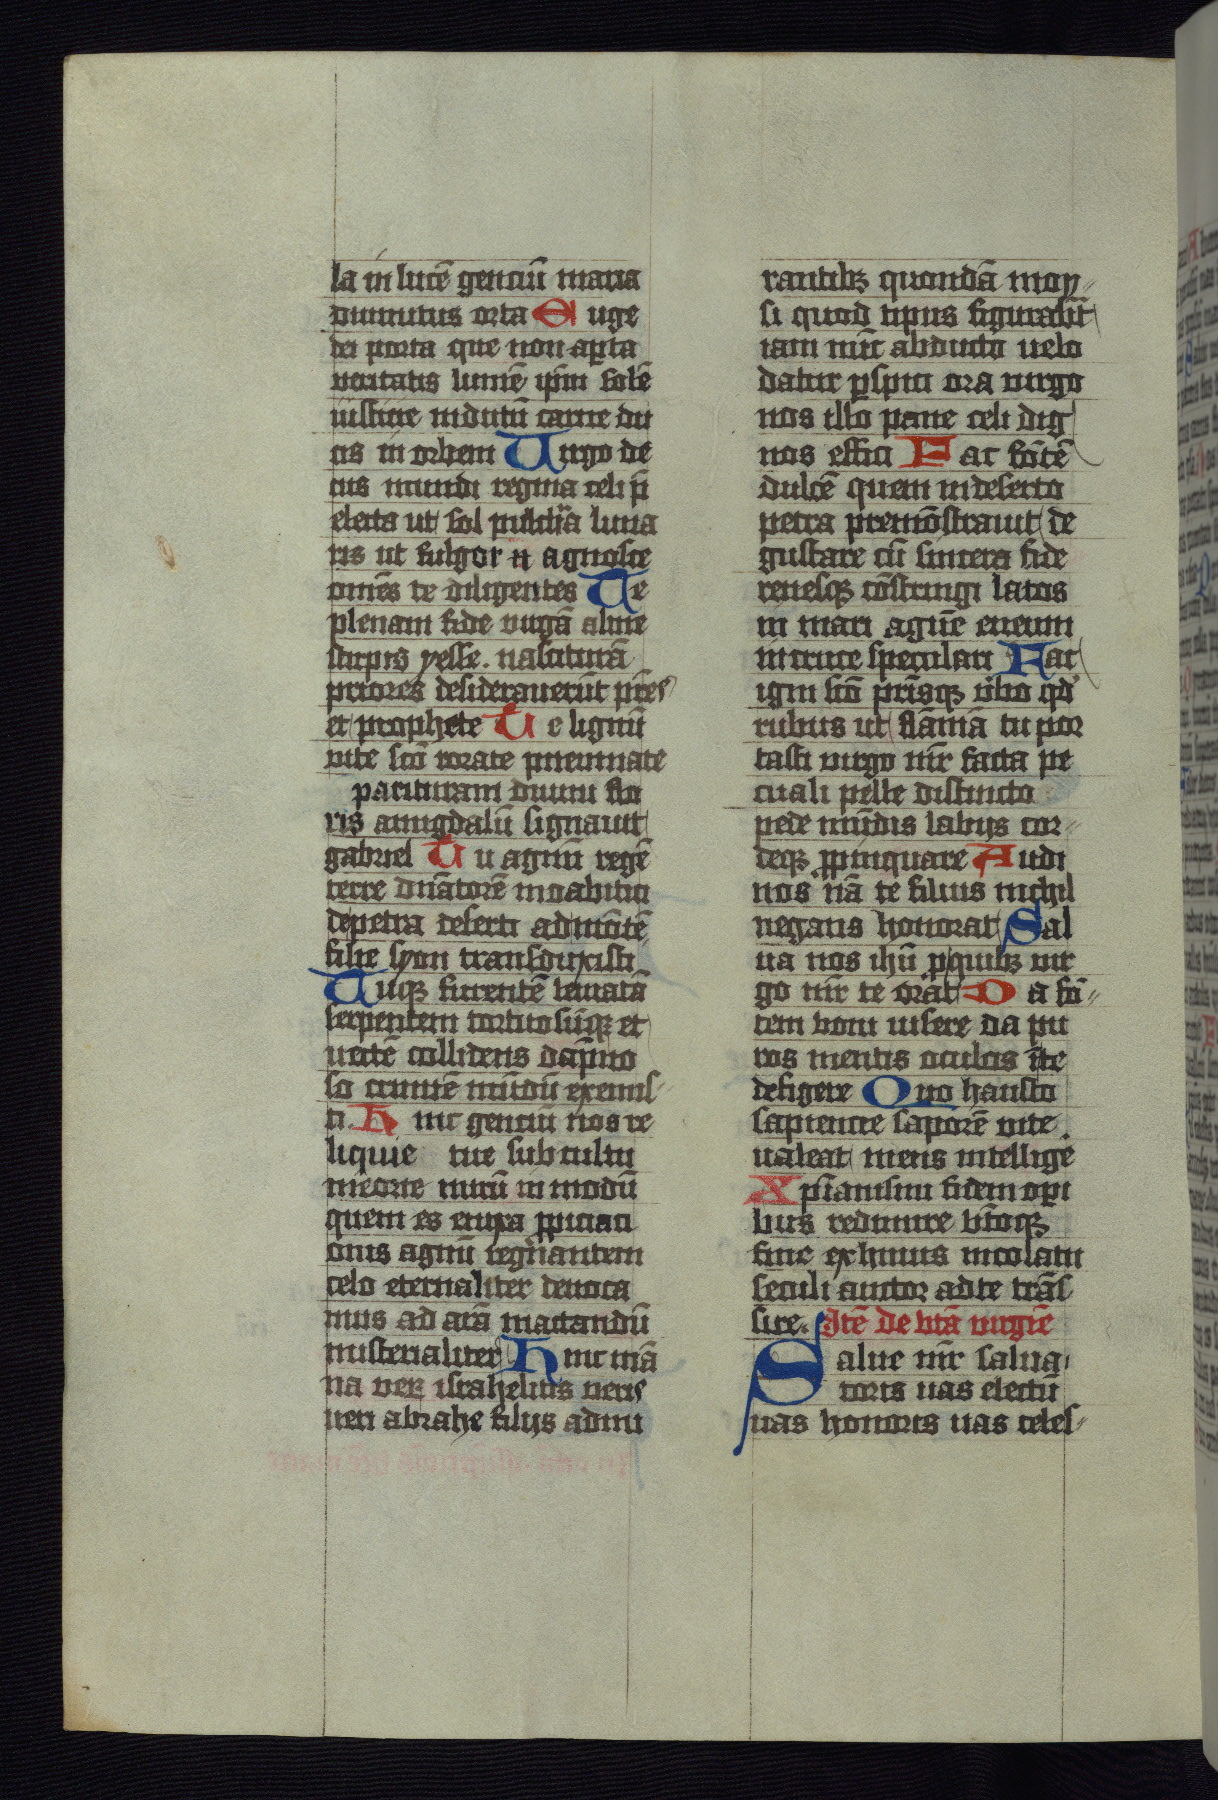 la in lucē genciū maria
diuinitus orta Euge
dei porta que non aꝑta
ueritatis lumē ip̄m solē
iusticie indutū carne du
cis in orbem Uirgo de
cus mundi regina celi p̄
electa ut sol pulchͣa luna
ris ut fulgor et agnosce
omēs te diligentes Te
plenam fide uirgā alme
stirpis yesse. nascituram̄
priores desiderauerūt pr̄es
et prophete Te lignū
uite sc̄o rorate pneumate
parituram diuini flo
ris amigdalū signauit
gabriel Tu agnū regē
terre dn̄atorē moabitici
de petra deserti ad mōtē
filie syon transduxisti
Tuqꝫ furentē leuiatā
serpentem tortuosūqꝫ et
uectē collidens dāpno
so crimīe mūdū exemis-
ti. Hinc genciū nos re
liquie tue sub cultu
meorie mirū in modū
quem es enixa ꝓpiciaci
onis agnū regnantem
celo eternaliter deuoca
mus ad arā mactandū
misterialiter Hinc mā
na uerꝝ israhelitis ueris
ueri abrahe filijs admi
rantibꝫ quondā moy-
si quod tipus figurabat̄
iam nūc abducto uelo
datur ꝑspici ora uirgo
nos illo pane celi dig
nos effici Fac fōtē
dulcē quem in deserto
petra premōstrauit de
gustare cū sincera fide
renesqꝫ cōstringi latos
in mari aguē eneum
in cruce speculari Fac
igni sc̄o pr̄isqꝫ ūbo qd̓
rubus ut flāmā tu por
tasti uirgo mr̄ facta pe
cuali pelle distincto
pede mūdis labijs cor-
deqꝫ ꝓpinquare Audi
nos nā te filius nichil
negans honorat Sal
ua nos ih̄u ꝓ quibꝫ uir
go mr̄ te orat Da fō-
tem boni uisere da pu
ros mentis oculos ī te
defigere Quo hausto
sapiencie saporē uite
ualeat mens intellige
Xp̄ianismi fidem opi
bus redimire bt̄oqꝫ
fine ex huius incolatu
seculi auctor ad te trās
sire. Itē de btā uirgīe
Salue mr̄ salua
toris uas electū
uas honoris uas celes-